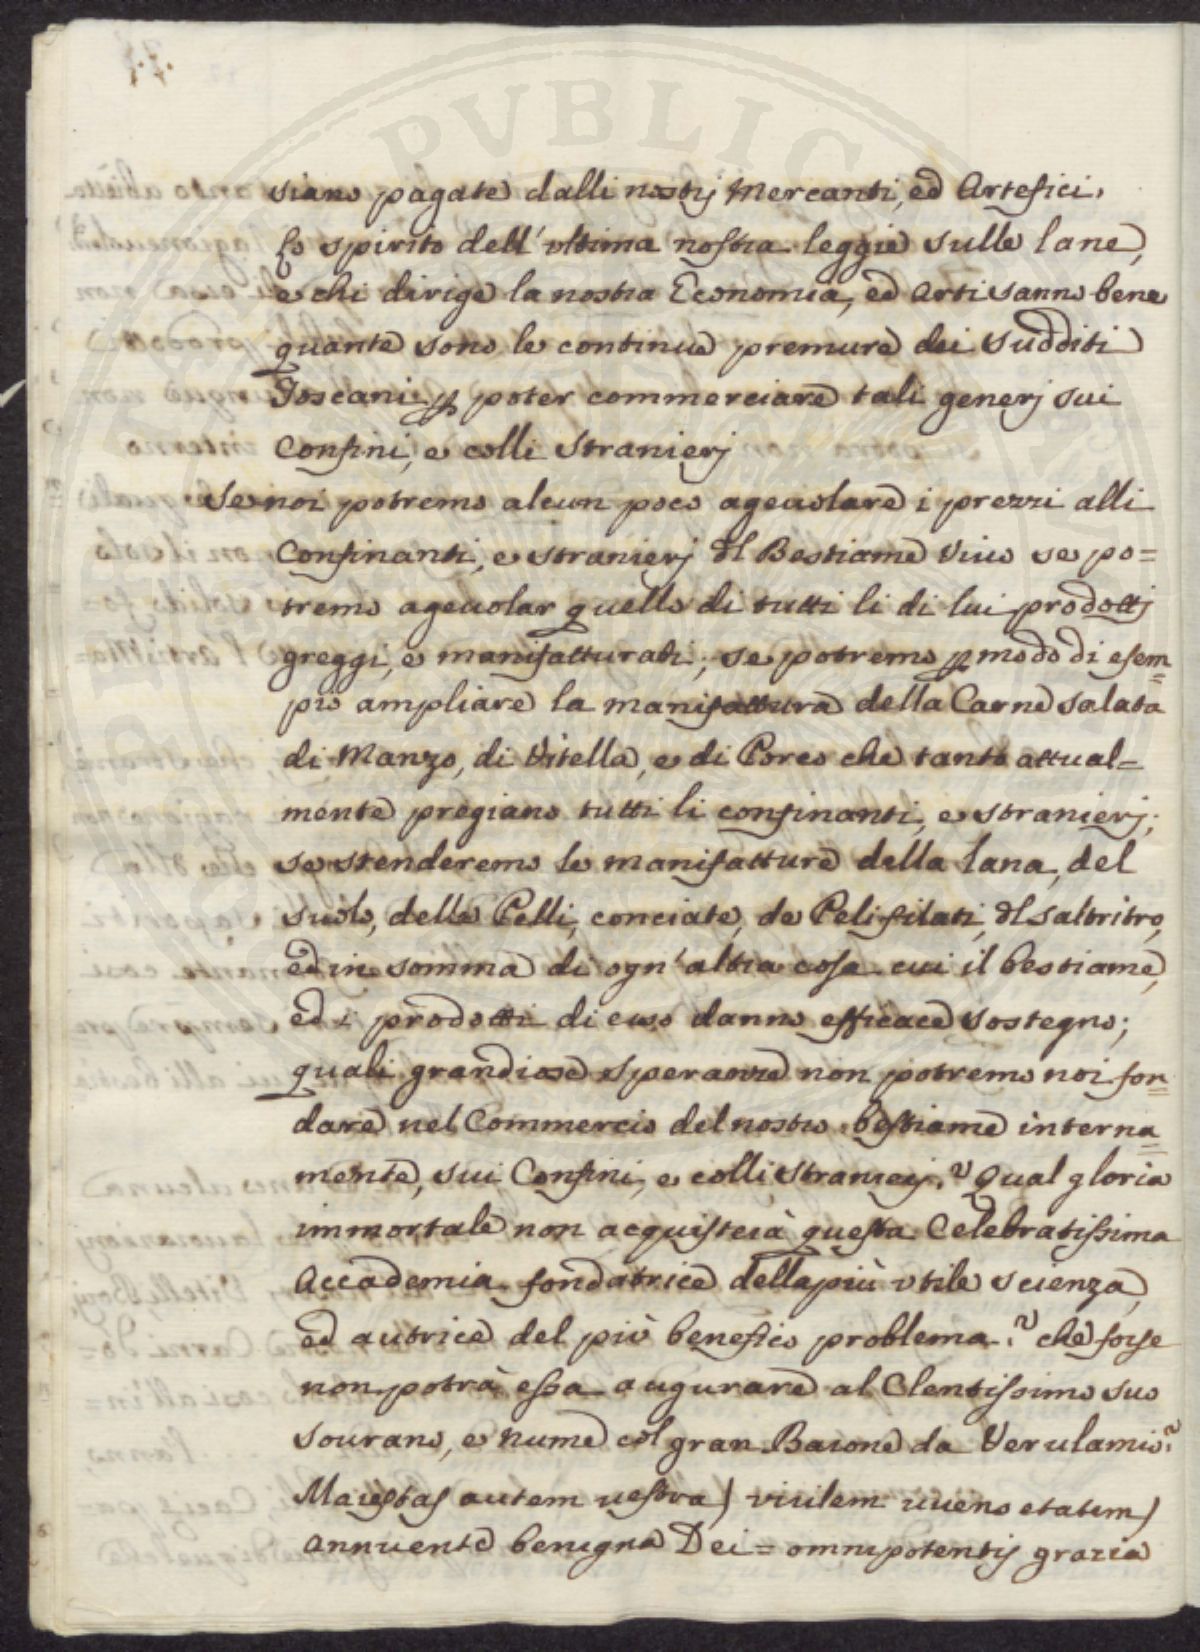 siano pagate dalli nostrj Mercanti, ed Artefici.
Lo spirito dell'ultima nostra leggie sulle lane,
e chi dirige la nostra Economia, ed Arti sanno bene
quante sono le continue premure dei sudditi
Toscani p poter commerciare tali generj sui
Confini, e colli stranierj
Se noi potremo alcun poco agevolare i prezzi alli
Confinanti, e stranierj dl Bestiame vivo se po=
tremo agevolar quello di tutti li di lui prodottj
greggi, e manifatturati; se potremo p modo di esem=
pio ampliare la manifattura della Carne salata
di Manzo, di Vitella, e di Porco che tanto attual=
mente pregiano tutti li confinanti, e stranierj;
se stenderemo le manifatture della lana, del
suolo, delle Pelli, conciate, de Peli filati, dl salnitro,
ed in somma di ogn'altra cosa cui il bestiame,
ed i prodotti di esso danno efficace sostegno;
quali grandiose speranze non potremo noi fon=
dare nel Commercio del nostro bestiame interna=
mente, sui Confini, e colli stranierj? Qual gloria
immortale non acquisterà questa Celebratissima
Accademia fondatrice della più utile scienza,
ed autrice del più benefico problema? che forse
non potrà essa augurare al Clentissimo suo
sovrano, e nume col gran Barone da Verulamio?
Maiestas autem vestra) virilem iuens etatem)
annuente benigna Dei=omnipotentis grazia
PVBLIC